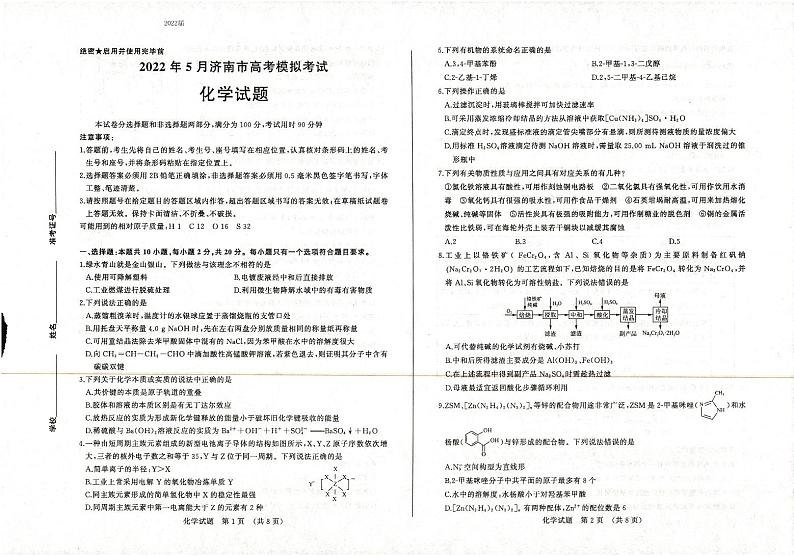 2022届
绝密★启用并使用完毕前
2022 年 5 月济南市高考模拟考试
化学试题
本试卷分选择题和非选择题两部分,满分为 100 分,考试用时 90 分钟
注意事项:
1.答题前,考生先将自己的姓名、考生号、座号填写在相应位置,认真核对条形码上的姓名、考
生号和座号,并将条形码粘贴在指定位置上。
2.选择题答案必须用 2B 铅笔正确填涂,非选择题答案必须用 0.5 毫米黑色签字笔书写,字体
工整、笔迹清楚。
3.请按照题号在给定题目的答题区域内作答,超出答题区域书写的答案无效;在草稿纸试题卷
上答题无效。保持卡面清洁,不折叠,不破损。
可能用到的相对原子质量:H 1 C 12 O 16 S 32
一、选择题:本题共 10 小题,每小题 2 分,共 20 分。每小题只有一个选项符合题目要求。
1.绿水青山就是金山银山。下列做法与该理念不相符的是
A.使用可降解塑料 B.电镀废液经中和后直接排放
C.工业燃煤进行脱硫处理 D.利用微生物降解水域中的有毒有害物质
2.下列说法正确的是
A.蒸馏粗溴苯时,温度计的水银球应置于蒸馏烧瓶的支管口处
B.用托盘天平称量 4.0 g NaOH 时,先在左右两盘分别放质量相同的称量纸再称量
C.可用重结晶法除去苯甲酸固体中混有的 NaCl,因为苯甲酸在水中的溶解度很大
D.向 CH₂=CH—CH₂—CHO 中滴加酸性高锰酸钾溶液,若紫色退去,则证明其分子中含有
碳碳双键
3.下列关于化学本质或实质的说法中正确的是
A.共价键的本质是原子轨道的重叠
B.胶体和溶液的本质区别是有无丁达尔效应
C.放热反应的实质为形成新化学键释放的能量小于破坏旧化学键吸收的能量
D.稀硫酸与 Ba(OH)₂溶液反应的实质为 Ba²⁺+OH⁻+H⁺+SO₄²⁻═BaSO₄↓+H₂O
4.一种由短周期主族元素组成的新型电池离子导体的结构如图所示,X、Y、Z 原子序数依次增
大,三者的核外电子数之和等于 35,Y 与 Z 位于同一周期。下列说法正确的是
A.简单离子的半径:Y>X
B.工业上常采用电解 Y 的氧化物冶炼单质 Y
C.同主族元素形成的简单氢化物中 X 的稳定性最强
D.同周期主族元素中第一电离能大于 Z 的元素有 2 种
化学试题 第 1 页 (共 8 页)
准考证号
姓名
学校
5.下列有机物的系统命名正确的是
A.3,4-甲基苯酚 B.2-甲基-1,3-二戊醇
C.2-乙基-1-丁烯 D.2,5-二甲基-4-乙基己烷
6.下列操作正确的是
A.过滤沉淀时,用玻璃棒搅拌可加快过滤速率
B.可采用蒸发浓缩冷却结晶的方法从溶液中获取[Cu(NH₃)₄]SO₄·H₂O
C.滴定终点时,发现盛标准液的滴定管尖嘴部分有悬滴,则所测待测液物质的量浓度偏大
D.用标准 H₂SO₄溶液滴定待测 NaOH 溶液时,需量取 25.00 mL NaOH 溶液于润洗过的锥
形瓶中
7.下列有关物质性质与应用之间具有对应关系的有几种?
①氯化铁溶液具有酸性,可用作刻蚀铜电路板 ②二氧化氯具有强氧化性,可用作饮用水消
毒 ③氯化钙具有很强的吸水性,可用作食品干燥剂 ④石英坩埚耐高温,可用来加热熔化
烧碱、纯碱等固体 ⑤活性炭具有极强的吸附能力,可用作制糖业的脱色剂 ⑥锡的金属活
泼性比铁弱,可在海轮外壳上装若干铜块以减缓其腐蚀
A.2 B.3 C.4 D.5
8.工业上以铬铁矿( FeCr₂O₄,含 Al、Si 氧化物等杂质)为主要原料制备红矾钠
(Na₂Cr₂O₇·2H₂O) 的工艺流程如下,已知焙烧的目的是将 FeCr₂O₄ 转化为 Na₂CrO₄,并
将 Al、Si 氧化物转化为可溶性钠盐。下列说法错误的是
铬铁矿 纯碱 H₂O H₂SO₄ H₂SO₄ 母液
O₂ 焙烧 浸取 中和 酸化 蒸发结晶 冷却结晶
滤渣 滤渣 副产品 Na₂Cr₂O₇·2H₂O
A.可代替纯碱的化学试剂有烧碱、小苏打
B.中和后所得滤渣主要成分是 Al(OH)₃、Fe(OH)₃
C.在上述流程中得到副产品 Na₂SO₄时需趁热过滤
D.母液最适宜返回酸化步骤循环利用
9.ZSM、[Zn(N₂H₄)₂(N₃)₂]。等锌的配合物用途非常广泛,ZSM 是 2-甲基咪唑( N NH CH₃ )和水
杨酸( OH OH O )与锌形成的配合物。下列说法错误的是
A.N₃⁻空间构型为直线形
B.2-甲基咪唑分子中共平面的原子最多有 8 个
C.水中的溶解度,水杨酸小于对羟基苯甲酸
D.[Zn(N₂H₄)₂(N₃)₂]。有两种配体,Zn²⁺的配位数是 6
化学试题 第 2 页 (共 8 页)